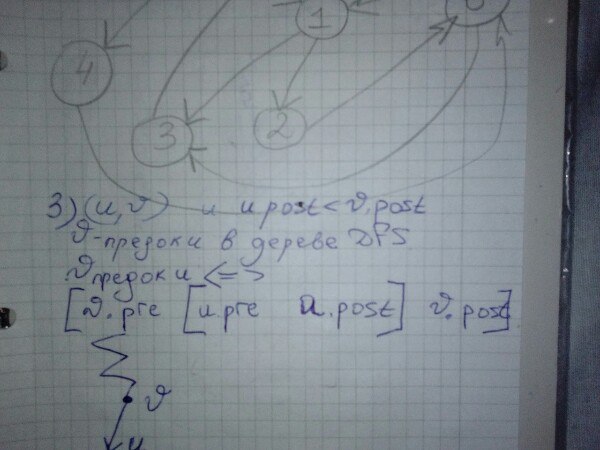 1
4
3
2
3) (u,v) и u.post < v.post
v-предок u в дереве DFS
v предок u <=>
[v.pre [u.pre u.post] v.post]
v
u